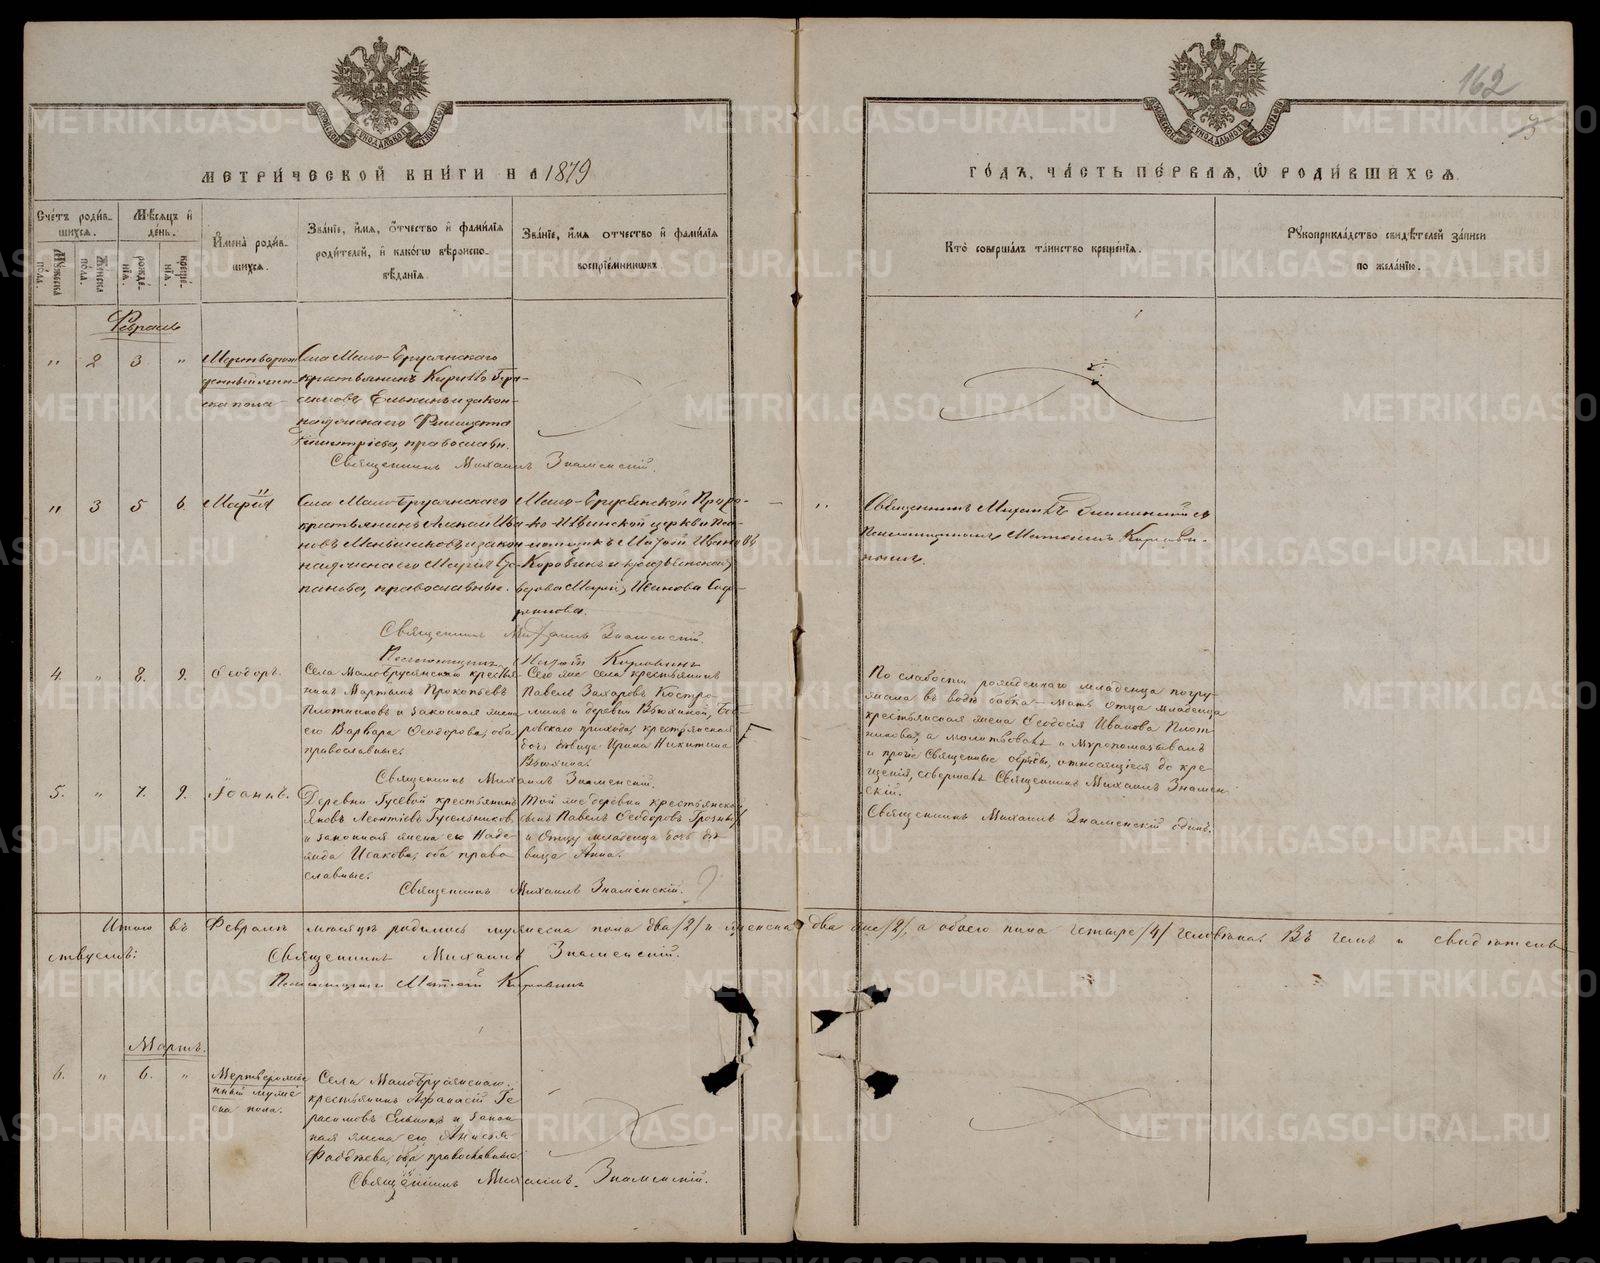 162
3
МЕТРИ́ЧЕСКОЙ КНИ́ГИ НА 1879
ГО́ДЪ, ЧА́СТЬ ПЕ́РВАѦ, Ѡ РОДИ́ВШИХСѦ.
Сче́тъ роди́в-
шихсѧ.
Мѣ́сѧцъ и
де́нь.
Мꙋ́жеска
по́ла.
Же́нска
по́ла.
рожде́-
нїѧ.
креще́-
нїѧ.
И҆мена̀ роди́в-
шихсѧ.
Зва́нїе, и҆́мѧ, ѻ҆́тчество и҆ фами́лїѧ
роди́телей, и҆ како́гѡ вѣроиспо-
вѣ́данїѧ.
Зва́нїе, и҆́мѧ ѻ҆́тчество и҆ фами́лїѧ
воспрїе́мникѡвъ.
Кто̀ соверша́лъ та́инство креще́нїѧ.
Рꙋкоприкла́дство свидѣ́телей за́писи
по жела́нїю.
Февраль
" 2 3 "
Мертворож
денный жен-
ска пола
Села Мало-Брусянскаго
крестьянинъ Кирилло Гера-
симовъ Елькинъ и закон-
православн.
Священникъ Михаилъ Знаменскій.
" 3 5 6 Марія
Села Мало-Брусянскаго
крестьянинъ Ива-
новъ Меньшиковъ и закон-
Марія Сте-
панова, православные.
Мало-Брусянской Проро-
ко-Ильинской церкви Пса-
ломщикъ Матѳій Ивановъ
Коровинъ и крестьянская
вдова Марія Иванова Соф-
ронова.
Священникъ Михаилъ Знаменскій съ
Псаломщикомъ Матѳіемъ Корови-
нымъ.
Священникъ Михаилъ Знаменскій.
Псаломщикъ Матѳій Коровинъ
4. " 8. 9. Ѳеодоръ.
Села Малобрусянскаго крестья-
нинъ Мартынъ Прокопьевъ
Плотниковъ и законная жена
его Варвара Ѳеодорова, оба
православные.
Сего же села крестьянинъ
Павелъ Захаровъ Костро-
минъ и деревни Вьюхиной, Бо-
ровскаго прихода, крестьянская
дочь девица Ирина Никитина
Вьюхина.
По слабости рожденнаго младенца погру-
жала въ воду бабка - мать отца младенца
крестьянская жена Ѳеодосія Иванова Плот
никова, а молитвовалъ и мѵропомазывалъ
и прочіе Священные обряды, относящіеся до кре-
щенія, совершалъ Священникъ Михаилъ Знамен-
скій.
Священникъ Михаилъ Знаменскій.
5. " 7. 9. Іоаннъ.
Деревни Гусевой крестьянинъ
Яковъ Леонтіевъ Гусельниковъ
и законная жена его Наде-
жда Исакова, оба право-
славные.
Той же деревни крестьянской
сынъ Павелъ Ѳеодоровъ Грозныхъ
и Отцу младенца дочь де-
вица Анна.
Священникъ Михаилъ Знаменскій одинъ.
Священникъ Михаилъ Знаменскій.
Итого въ Февралѣ мѣсяцѣ родилось мужеска пола два /2/ и женска два же /2/, а обоего пола четыре /4/ человѣка. Въ чемъ и свидѣтель-
ствуемъ:
Священникъ Михаилъ Знаменскій.
Псаломщикъ Матѳій Коровинъ
Мартъ.
6. " 6. "
Мертворожде
нный муже
ска пола.
Села Малобрусянскаго
крестьянинъ Аѳанасій Ге
расимовъ Елькинъ и закон
ная жена его Анисья
Фаддѣева, оба православные
Священникъ Михаилъ Знаменскій.